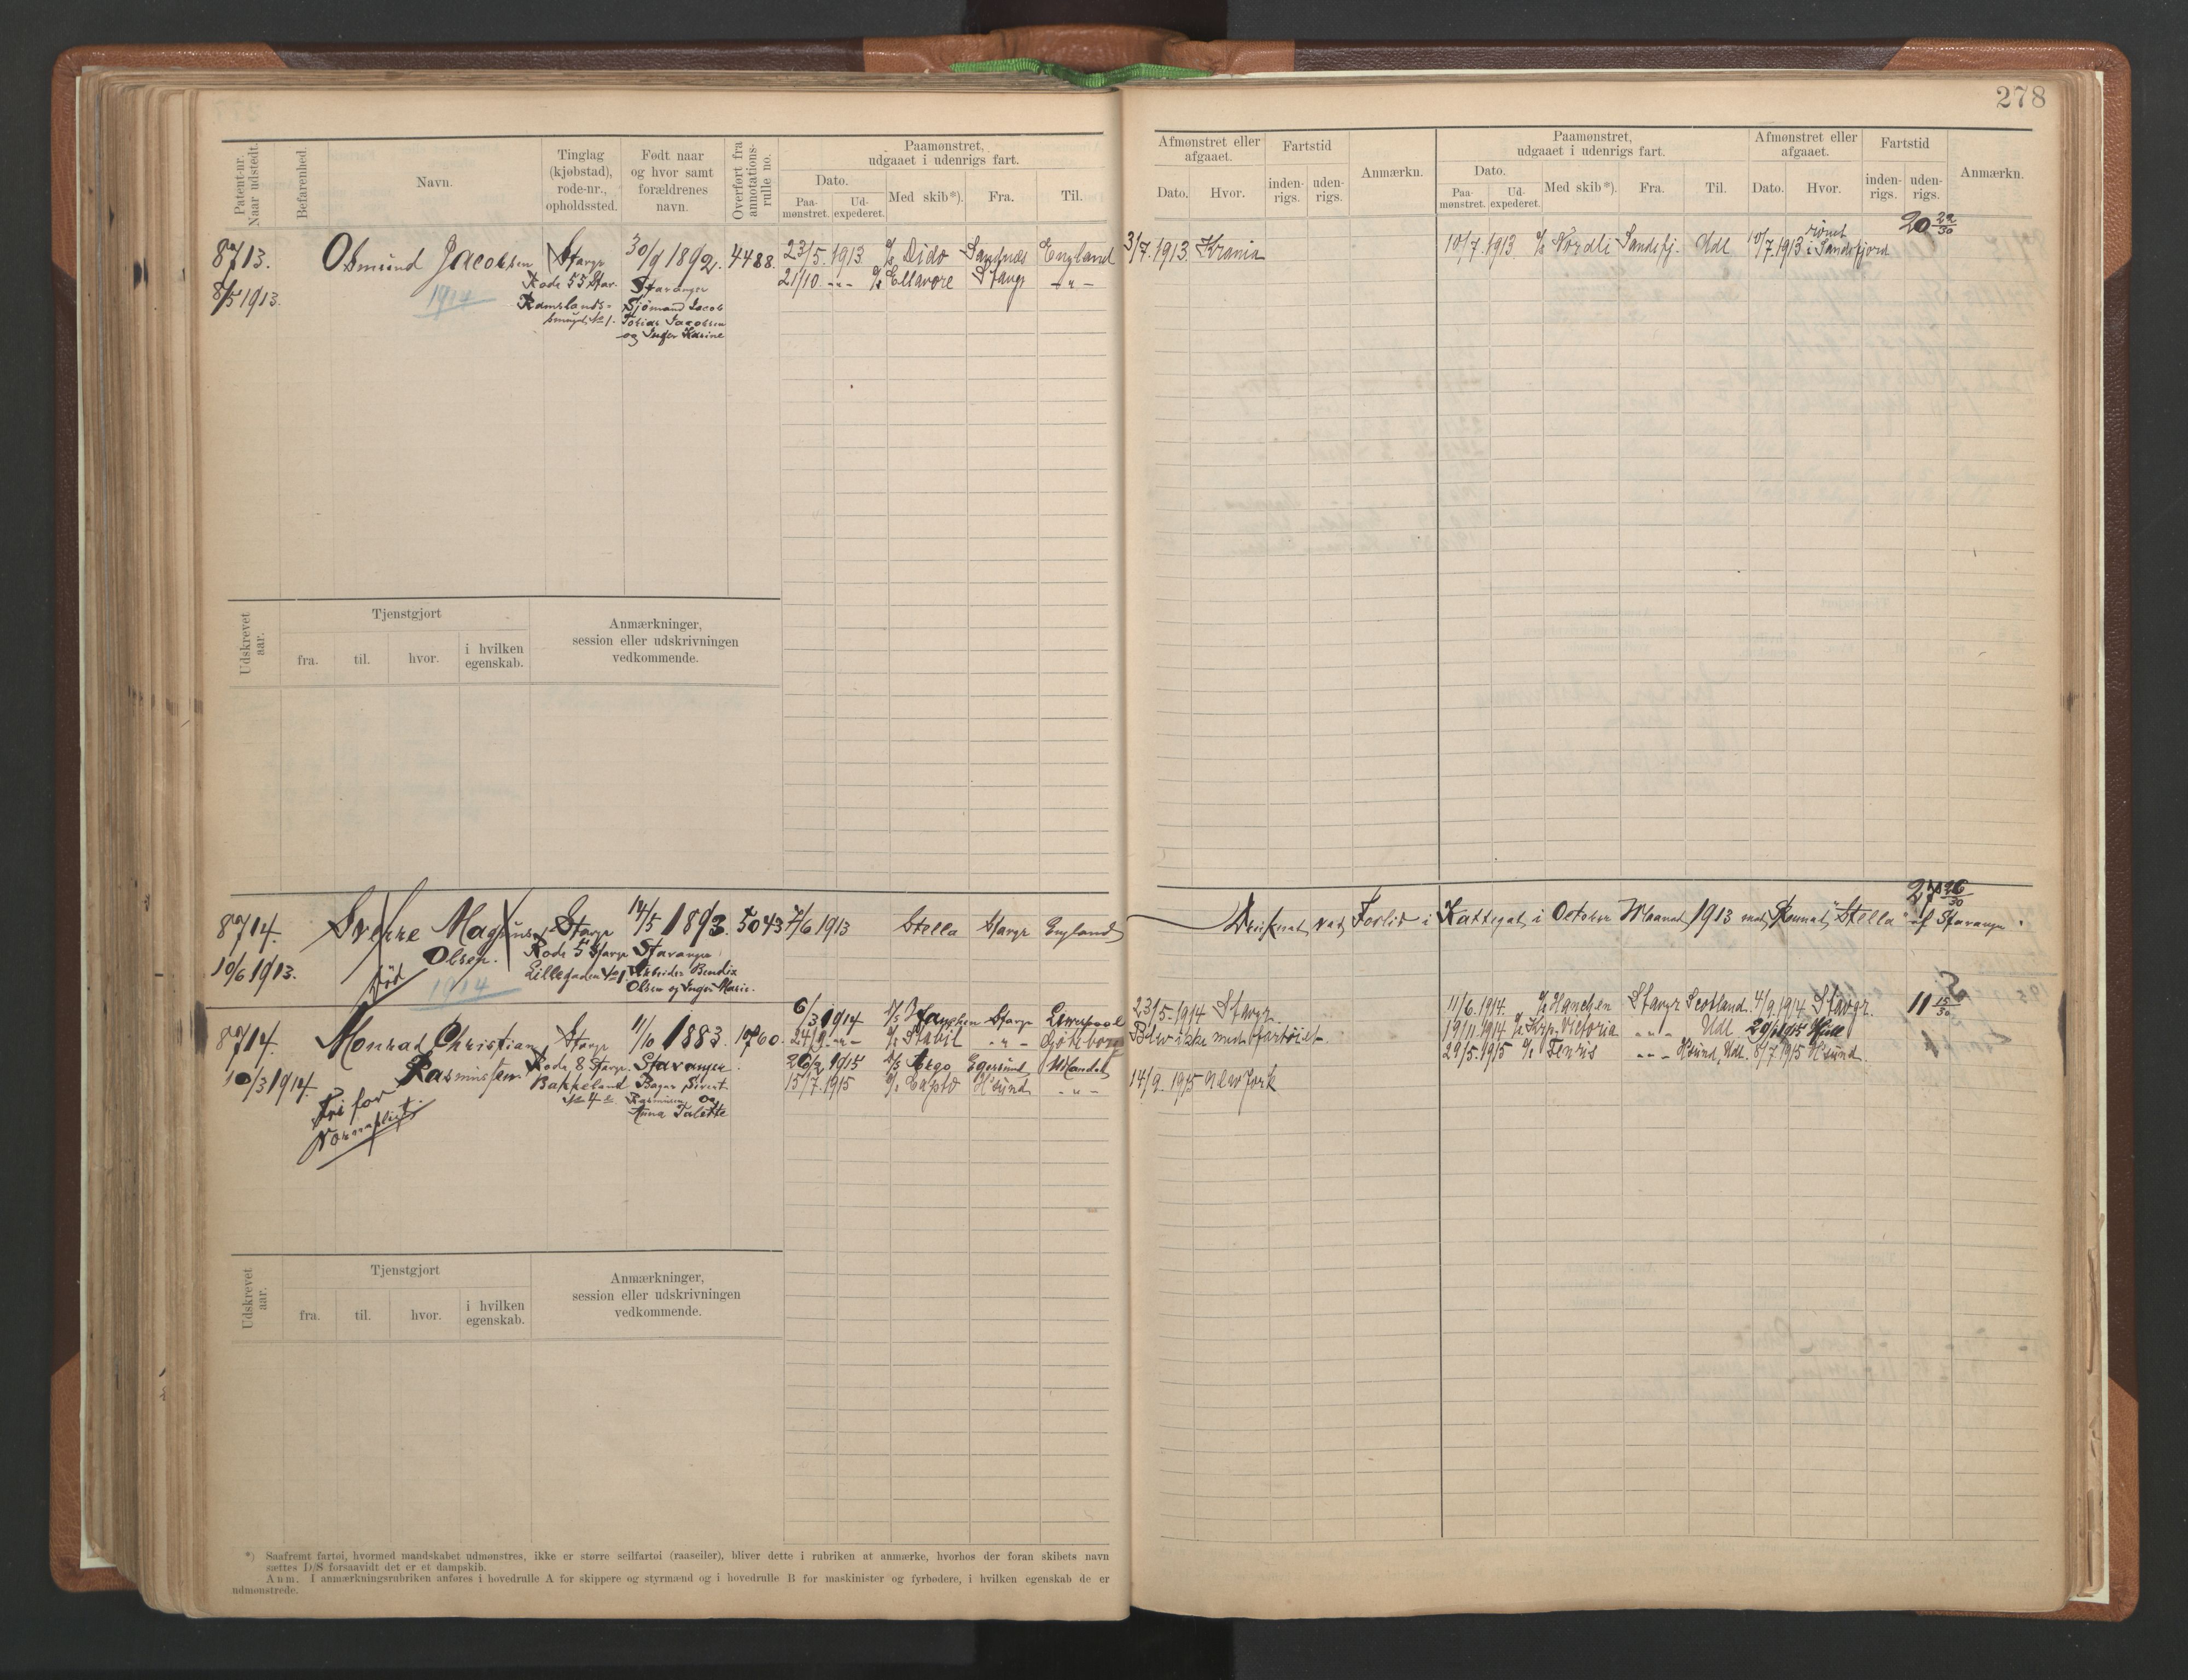 278
Patent-nr. Naar udstedt.
Befarenhed.
Navn.
Tinglag (kjøbstad), rode-nr., opholdssted.
Født naar og hvor samt forældrenes navn.
Overført fra annotations-rulle no.
Paamønstret, udgaaet i udenrigs fart.
Dato.
Paa-mønstret.
Ud-expederet.
Med skib*).
Fra.
Til.
Afmønstret eller afgaaet.
Dato.
Hvor.
Fartstid
inden-rigs.
uden-rigs.
Anmærkn.
Paamønstret, udgaaet i udenrigs fart.
Dato.
Paa-mønstret.
Ud-expederet.
Med skib*).
Fra.
Til.
Afmønstret eller afgaaet.
Dato.
Hvor.
Fartstid
inden-rigs.
uden-rigs.
Anmærkn.
8713.
8/5 1913.
Osmund Jacobsen
1914
Stavgr
Rode 55 Stav.
Ramslands-
smuget No 1.
30/9 1892.
Stavanger
Sjömand Jacob
Tobias Jacobsen
og Inger Karine
4488.
23/5. 1913 Dido Sandnæs England 3/7. 1913.
21/10. -"- Ellavore Stavgr -"-
10/7. 1913 Nordli Sandefj. Udl 10/7. 1913 rømt i Sandefjord
20 29/30
Udskrevet aar.
Tjenstgjort
fra.
til.
hvor.
i hvilken egenskab.
Anmærkninger, session eller udskrivningen vedkommende.
8714.
10/6 1913.
Sverre Magnus
Olsen.
Död
1914
Stavgr
Rode 5 Stavgr
Lillegaden No 1
14/5 1893.
Stavanger
Arbeider Bendix
Olsen og Inger Marie.
5043
7/6 1913 Stella Stavgr England
Forlis i Kattegat i October Maaned 1913 med "Stella" af Stavanger.
27 26/30
8714.
10/3 1914.
Monrad Christian
Rasmussen
Fri for
Værnepligt.
Stavgr
Rode 8 Stavgr.
Bakkeland
No 4
11/10 1883.
Stavanger
Bager Sivert
Rasmussen og
Anna Talette
10760.
6/3 1914 Stavgr Liverpool 23/5. 1914 Stavgr.
24/9 -"- Stabil -"- Göteborg Blev ikke med Fartöiet.
26/2 1915 Argo Egersund Mandal
15/7. 1915 H'sund -"- 14/9. 1915 New York
11/6. 1914. Hanchen Stavgr Scotland. 4/9. 1914. Stavgr.
19/11. 1914 Krp. Victoria -"- Udl 1915 Hull
29/5. 1915 Fenris -"- H'sund, Udl. 8/7. 1915 H'sund.
11 15/30
Udskrevet aar.
Tjenstgjort
fra.
til.
hvor.
i hvilken egenskab.
Anmærkninger, session eller udskrivningen vedkommende.
*) Saafremt fartøi, hvormed mandskabet udmønstres, ikke er større seilfartøi (raaseiler), bliver dette i rubriken at anmærke, hvorhos der foran skibets navn
sættes D/S forsaavidt det er et dampskib.
Anm. I anmærkningsrubriken anføres i hovedrulle A for skippere og styrmænd og i hovedrulle B for maskinister og fyrbødere, i hvilken egenskab de er
udmønstrede.